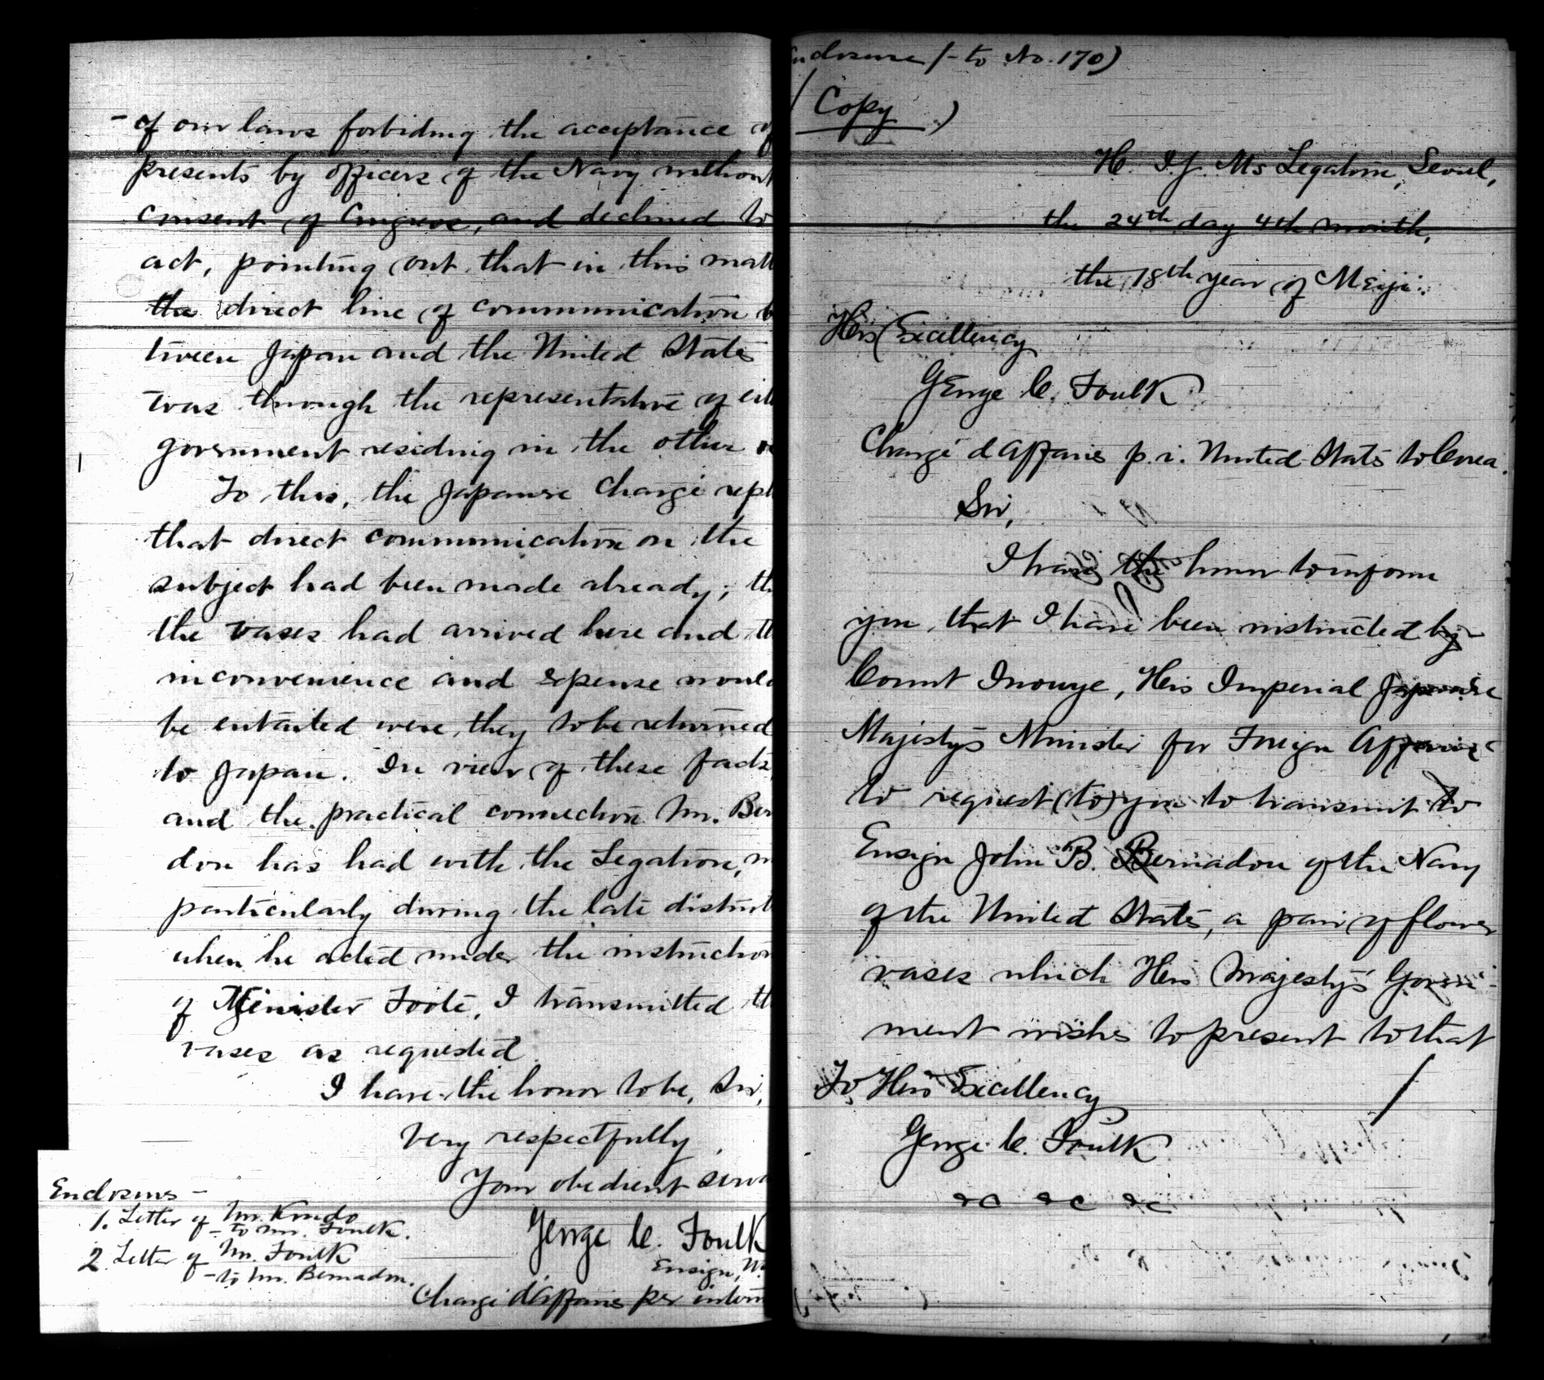 of our laws forbiding the acceptance of
presents by officers of the Navy without
consent of Congress, and declined to
act, pointing out that in this matt
the direct line of communication b
tween Japan and the United States
was through the representative of eit
government residing in the other
To this, the Japanese Chargé repl
that direct communication on the
subject had been made already; th
the vases had arrived here and th
inconvenience and expense would
be entailed were they to be returned
to Japan. In view of these facts,
and the practical connection Mr. Ber
dou has had with the Legation, m
particularly during the late disturb
when he acted under the instruction
of Minister Foote, I transmitted th
vases as requested
I have the honor to be, Sir,
Very respectfully
Your obedient serva
George C. Foulk
Ensign, U.
Chargé d'Affaires per interim
Enclosures –
1. Letter of Mr. Kondo
– to Mr. Foulk.
2. Letter of Mr. Foulk
– to Mr. Bernadou.
nclosure 1 – to No. 170)
( Copy )
H. I. J. Ms Legation, Seoul,
the 24th day 4th month,
the 18th year of Meiji.
His Excellency
George C. Foulk
Chargé d'Affaires p. i. United States to Corea.
Sir,
I have the honor to inform
you that I have been instructed by
Count Inouye, His Imperial Japanese
Majesty's Minister for Foreign Affairs
to request (to) you to transmit to
Ensign John B. Bernadou of the Navy
of the United States, a pair of flower
vases which His Majesty's Govern-
ment wishes to present to that
To His Excellency
George C. Foulk
&c &c &c